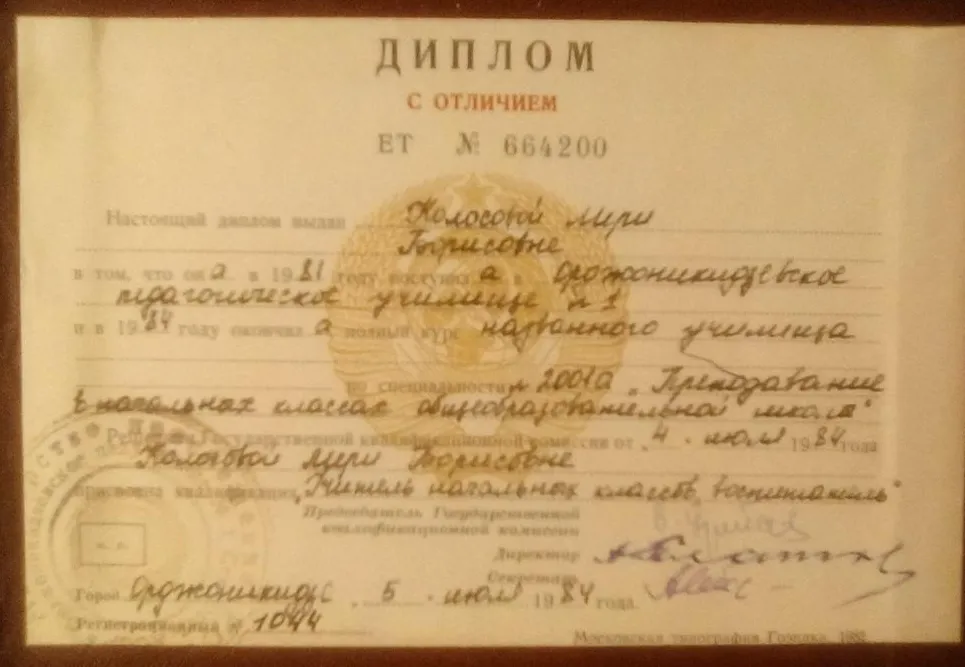 ДИПЛОМ
С ОТЛИЧИЕМ
ЕТ № 664200
Настоящий диплом выдан Колосовой Мери
Борисовне
в том, что она в 1981 году поступила в Орджоникидзевское
педагогическое училище №1
и в 1984 году окончила полный курс названного училища
по специальности № 2001а „Преподавание
в начальных классах общеобразовательной школы"
Решением Государственной квалификационной комиссии от 4 июля 1984 года
Колосовой Мери Борисовне
присвоена квалификация „Учитель начальных классов, воспитатель"
Председатель Государственной
квалификационной комиссии
Директор
Секретарь
Город Орджоникидзе 5 июля 1984 года.
Регистрационный № 1044
Московская типография Гознака.